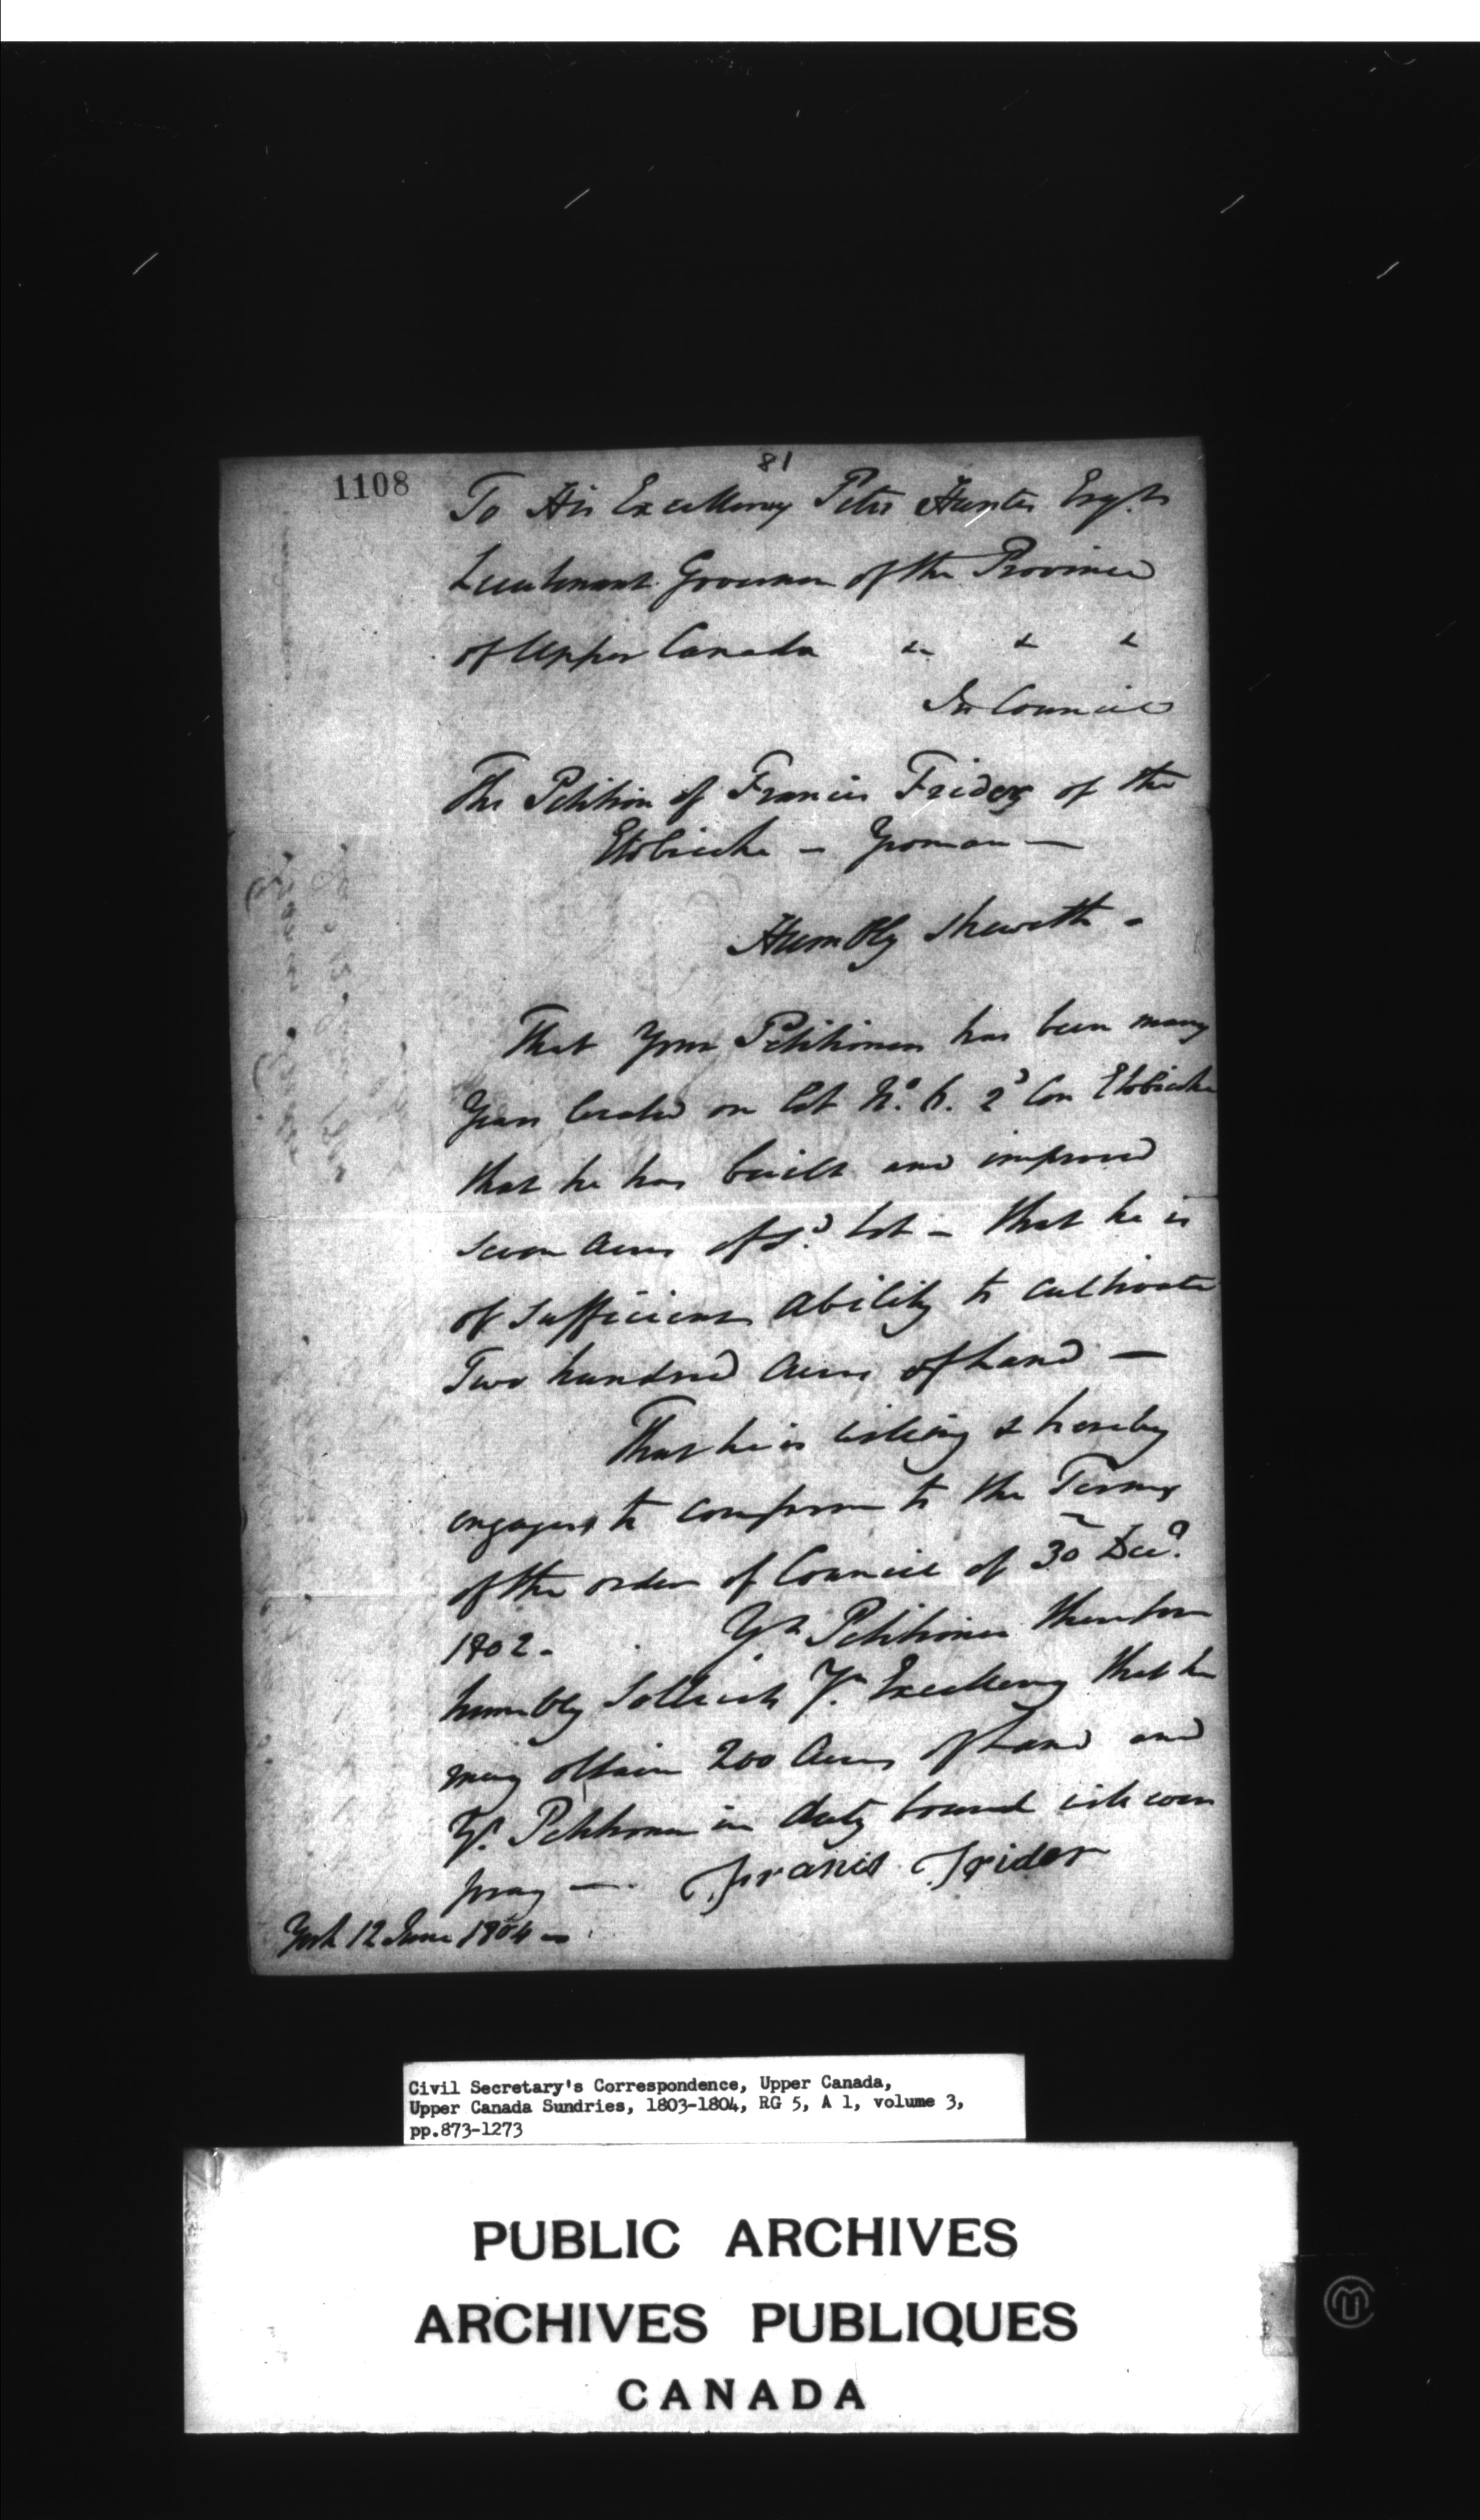 81
1108
To His Excellency Peter Hunter Esqr.
Lieutenant Governor of the Province
of Upper Canada &c & &
In Council
The Petition of Francis Frider of the
Etobicoke - Yeoman -
Humbly Sheweth -
That Your Petitioner has been many
Years located on lot No. 6. 2d Con Etobicoke
that he has built and improved
seven Acres of sd. lot - that he is
of sufficient Ability to cultivate
Two hundred Acres of Land -
That he is willing & hereby
engages to conform to the Terms
of the order of Council of 30 Decr.
1802 - Yr Petitioner therefore
humbly Sollicits Yr. Excellency that he
may obtain 200 Acres of Land and
Yr. Petitioner in duty bound will ever
pray - Francis Frider
York 12 June 1804 -
Civil Secretary's Correspondence, Upper Canada,
Upper Canada Sundries, 1803-1804, RG 5, A 1, volume 3,
pp.873-1273
PUBLIC ARCHIVES
ARCHIVES PUBLIQUES
CANADA